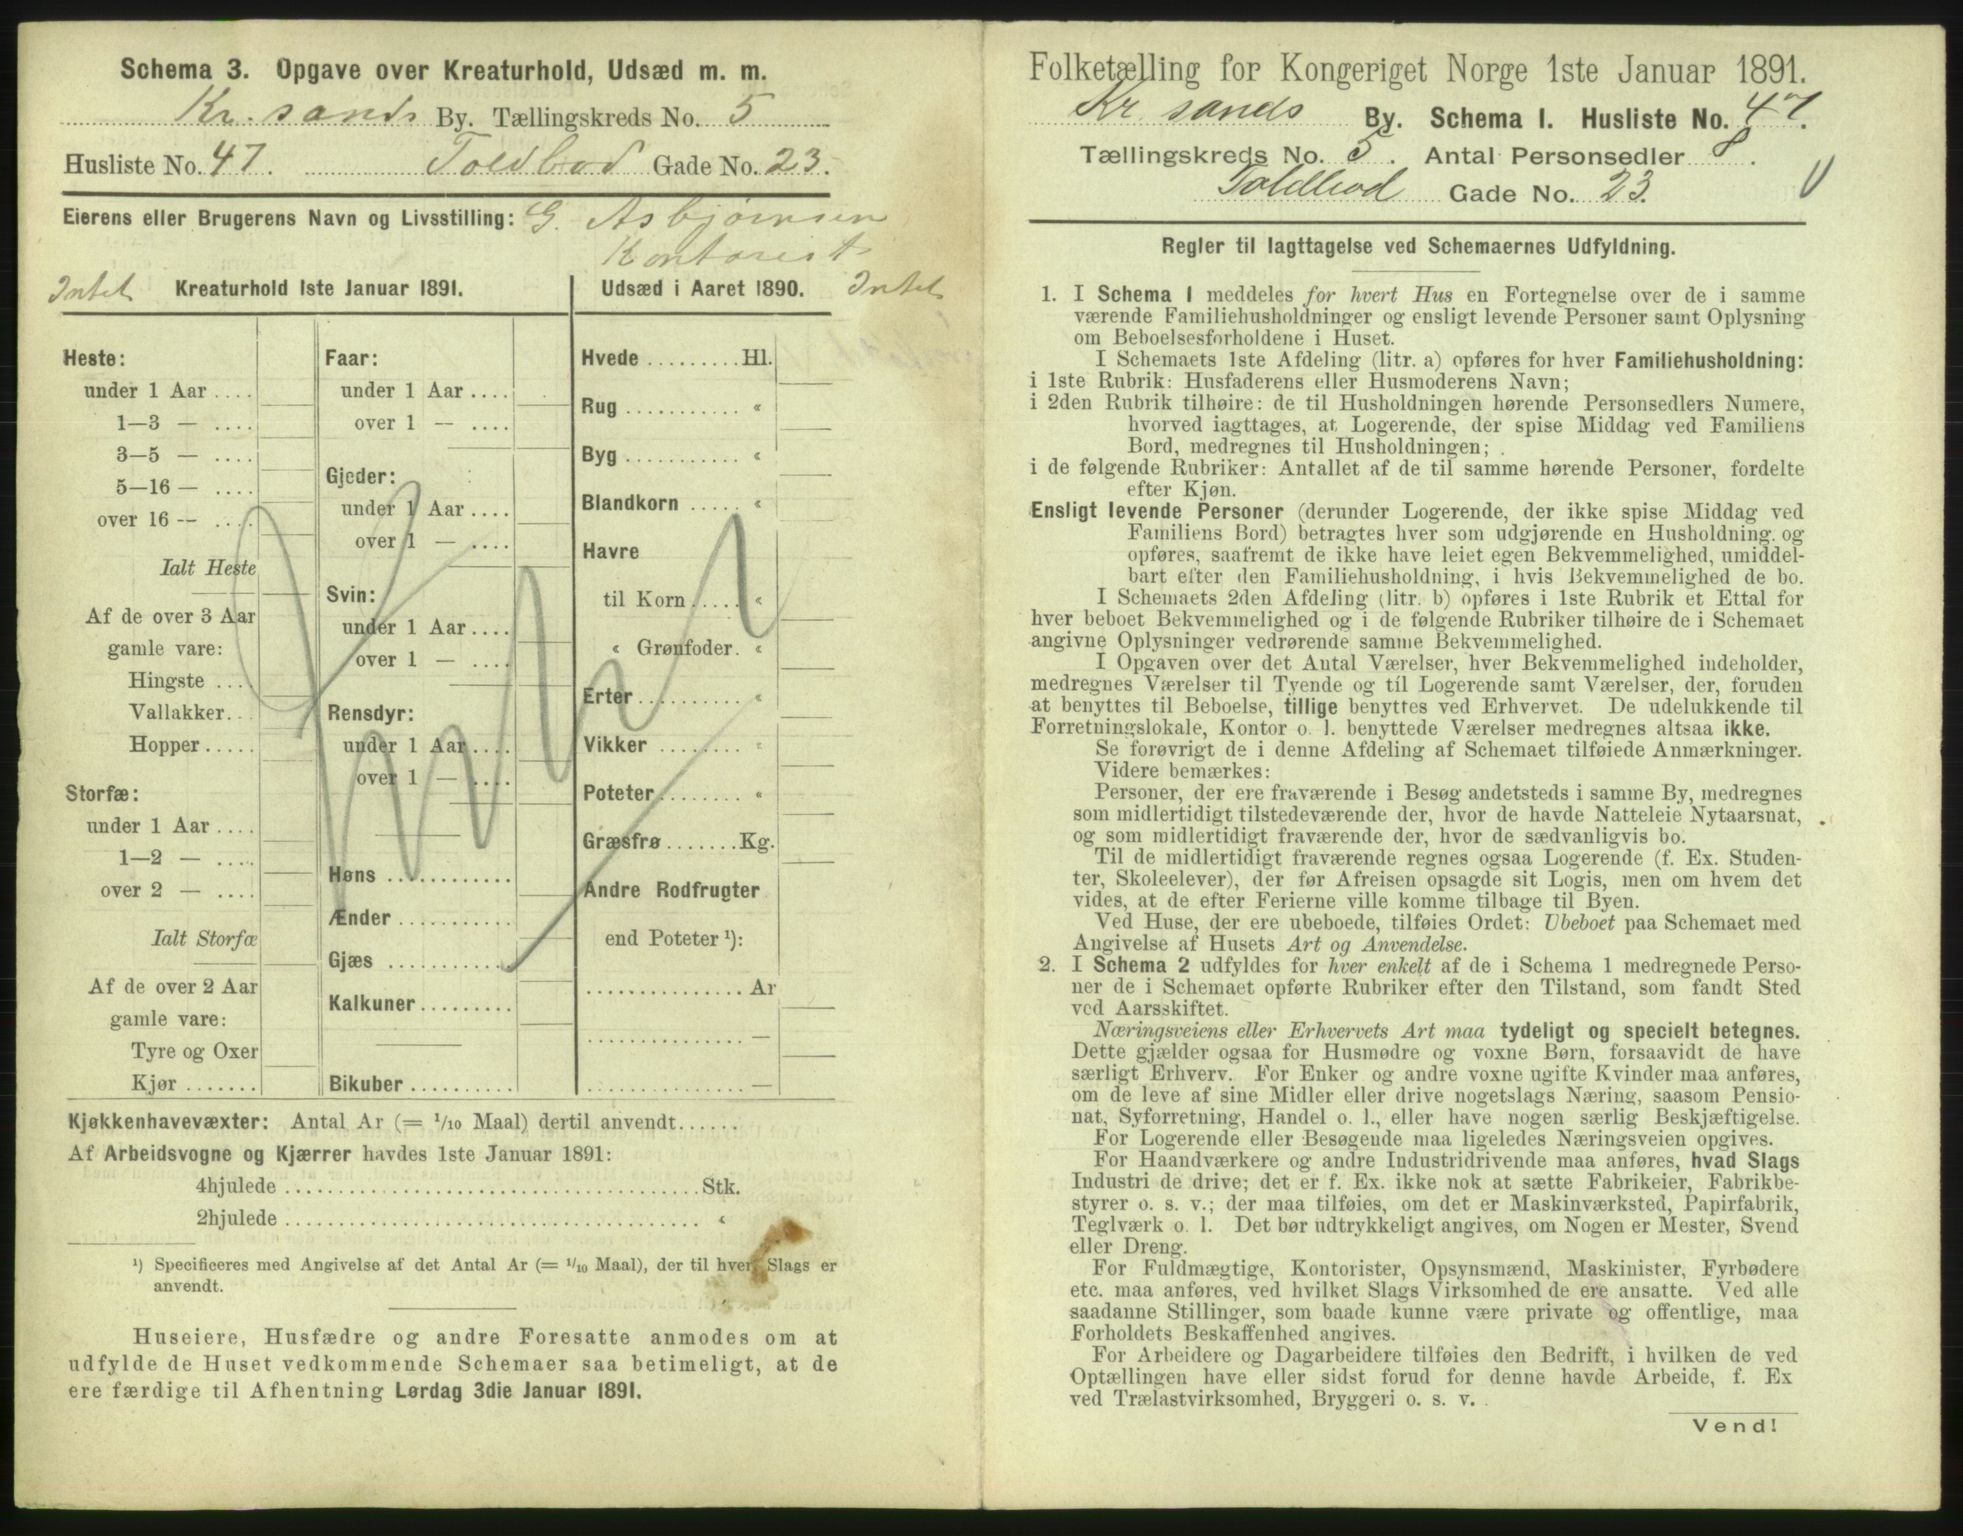 Schema 3. Opgave over Kreaturhold, Udsæd m. m.
Kr. sands By. Tællingskreds No. 5
Husliste No. 47. Toldbod Gade No. 23.
Eierens eller Brugerens Navn og Livsstilling: G. Asbjørnsen
Kontorist
Intet Kreaturhold 1ste Januar 1891.
Heste:
under 1 Aar ....
1—3 — ....
3—5 — ....
5—16 — ....
over 16 — ....
Ialt Heste
Af de over 3 Aar
gamle vare:
Hingste ....
Vallakker..
Hopper .....
Storfæ:
under 1 Aar ....
1—2 — ....
over 2 — ....
Ialt Storfæ
Af de over 2 Aar
gamle vare:
Tyre og Oxer
Kjør .......
Faar:
under 1 Aar ....
over 1 — ....
Gjeder:
under 1 Aar ....
over 1 — ....
Svin:
under 1 Aar ....
over 1 — ....
Rensdyr:
under 1 Aar ....
over 1 — ....
Høns ............
Ænder ..........
Gjæs ...........
Kalkuner.........
Bikuber ..........
Udsæd i Aaret 1890. Intet
Hvede .........Hl.
Rug ........... «
Byg ........... «
Blandkorn ..... «
Havre
til Korn..... «
« Grønfoder. «
Erter.......... «
Vikker ........ «
Poteter........ «
Græsfrø.......Kg.
Andre Rodfrugter
end Poteter ¹):
............... Ar
............... —
............... —
Kjøkkenhavevæxter: Antal Ar (= 1/10 Maal) dertil anvendt......
Af Arbeidsvogne og Kjærrer havdes 1ste Januar 1891:
4hjulede ....................................... Stk.
2hjulede ....................................... «
¹) Specificeres med Angivelse af det Antal Ar (= 1/10 Maal), der til hver Slags er
anvendt.
Huseiere, Husfædre og andre Foresatte anmodes om at
udfylde de Huset vedkommende Schemaer saa betimeligt, at de
ere færdige til Afhentning Lørdag 3die Januar 1891.
Folketælling for Kongeriget Norge 1ste Januar 1891.
Kr sands By. Schema I. Husliste No. 47.
Tællingskreds No. 5. Antal Personsedler 8.
Toldbod Gade No. 23.
Regler til Iagttagelse ved Schemaernes Udfyldning.
1. I Schema 1 meddeles for hvert Hus en Fortegnelse over de i samme
værende Familiehusholdninger og ensligt levende Personer samt Oplysning
om Beboelsesforholdene i Huset.
I Schemaets 1ste Afdeling (litr. a) opføres for hver Familiehusholdning:
i 1ste Rubrik: Husfaderens eller Husmoderens Navn;
i 2den Rubrik tilhøire: de til Husholdningen hørende Personsedlers Numere,
hvorved iagttages, at Logerende, der spise Middag ved Familiens
Bord, medregnes til Husholdningen;
i de følgende Rubriker: Antallet af de til samme hørende Personer, fordelte
efter Kjøn.
Ensligt levende Personer (derunder Logerende, der ikke spise Middag ved
Familiens Bord) betragtes hver som udgjørende en Husholdning og
opføres, saafremt de ikke have leiet egen Bekvemmelighed, umiddel-
bart efter den Familiehusholdning, i hvis Bekvemmelighed de bo.
I Schemaets 2den Afdeling (litr. b) opføres i 1ste Rubrik et Ettal for
hver beboet Bekvemmelighed og i de følgende Rubriker tilhøire de i Schemaet
angivne Oplysninger vedrørende samme Bekvemmelighed.
I Opgaven over det Antal Værelser, hver Bekvemmelighed indeholder,
medregnes Værelser til Tyende og til Logerende samt Værelser, der, foruden
at benyttes til Beboelse, tillige benyttes ved Erhvervet. De udelukkende til
Forretningslokale, Kontor o. l. benyttede Værelser medregnes altsaa ikke.
Se forøvrigt de i denne Afdeling af Schemaet tilføiede Anmærkninger.
Videre bemærkes:
Personer, der ere fraværende i Besøg andetsteds i samme By, medregnes
som midlertidigt tilstedeværende der, hvor de havde Natteleie Nytaarsnat,
og som midlertidigt fraværende der, hvor de sædvanligvis bo.
Til de midlertidigt fraværende regnes ogsaa Logerende (f. Ex. Studen-
ter, Skoleelever), der før Afreisen opsagde sit Logis, men om hvem det
vides, at de efter Ferierne ville komme tilbage til Byen.
Ved Huse, der ere ubeboede, tilføies Ordet: Ubeboet paa Schemaet med
Angivelse af Husets Art og Anvendelse.
2. I Schema 2 udfyldes for hver enkelt af de i Schema 1 medregnede Perso-
ner de i Schemaet opførte Rubriker efter den Tilstand, som fandt Sted
ved Aarsskiftet.
Næringsveiens eller Erhvervets Art maa tydeligt og specielt betegnes.
Dette gjælder ogsaa for Husmødre og voxne Børn, forsaavidt de have
særligt Erhverv. For Enker og andre voxne ugifte Kvinder maa anføres,
om de leve af sine Midler eller drive nogetslags Næring, saasom Pensio-
nat, Syforretning, Handel o. l., eller have nogen særlig Beskjæftigelse.
For Logerende eller Besøgende maa ligeledes Næringsveien opgives.
For Haandværkere og andre Industridrivende maa anføres, hvad Slags
Industri de drive; det er f. Ex. ikke nok at sætte Fabrikeier, Fabrikbe-
styrer o. s. v.; der maa tilføies, om det er Maskinværksted, Papirfabrik,
Teglværk o. l. Det bør udtrykkeligt angives, om Nogen er Mester, Svend
eller Dreng.
For Fuldmægtige, Kontorister, Opsynsmænd, Maskinister, Fyrbødere
etc. maa anføres, ved hvilket Slags Virksomhed de ere ansatte. Ved alle
saadanne Stillinger, som baade kunne være private og offentlige, maa
Forholdets Beskaffenhed angives.
For Arbeidere og Dagarbeidere tilføies den Bedrift, i hvilken de ved
Optællingen have eller sidst forud for denne havde Arbeide, f. Ex
ved Trælastvirksomhed, Bryggeri o. s. v.
Vend!